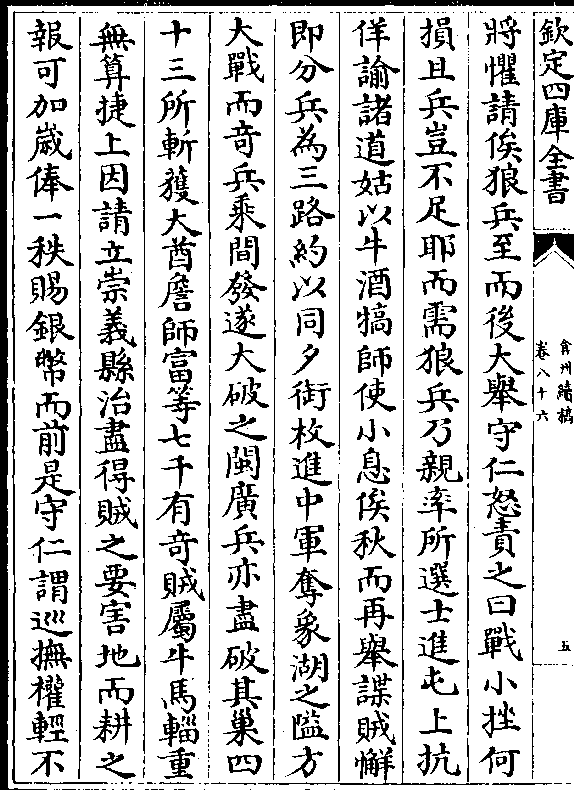 欽定四庫全書
弇州續稿
卷八十六
五
將懼請俟狼兵至而後大舉守仁怒責之曰戰小挫何
損且兵豈不足耶而需狼兵乃親率所選士進屯上抗
佯諭諸道姑以牛酒犒師使小息俟秋而再舉諜賊懈
即分兵為三路約以同夕銜枚進中軍奪象湖之隘方
大戰而竒兵乘間發遂大破之閩廣兵亦盡破其巢四
十三所斬獲大酋詹師富等七千有竒賊屬牛馬輜重
無算捷上因請立崇義縣治盡得賊之要害地而耕之
報可加嵗俸一秩賜銀幣而前是守仁謂巡撫權輕不